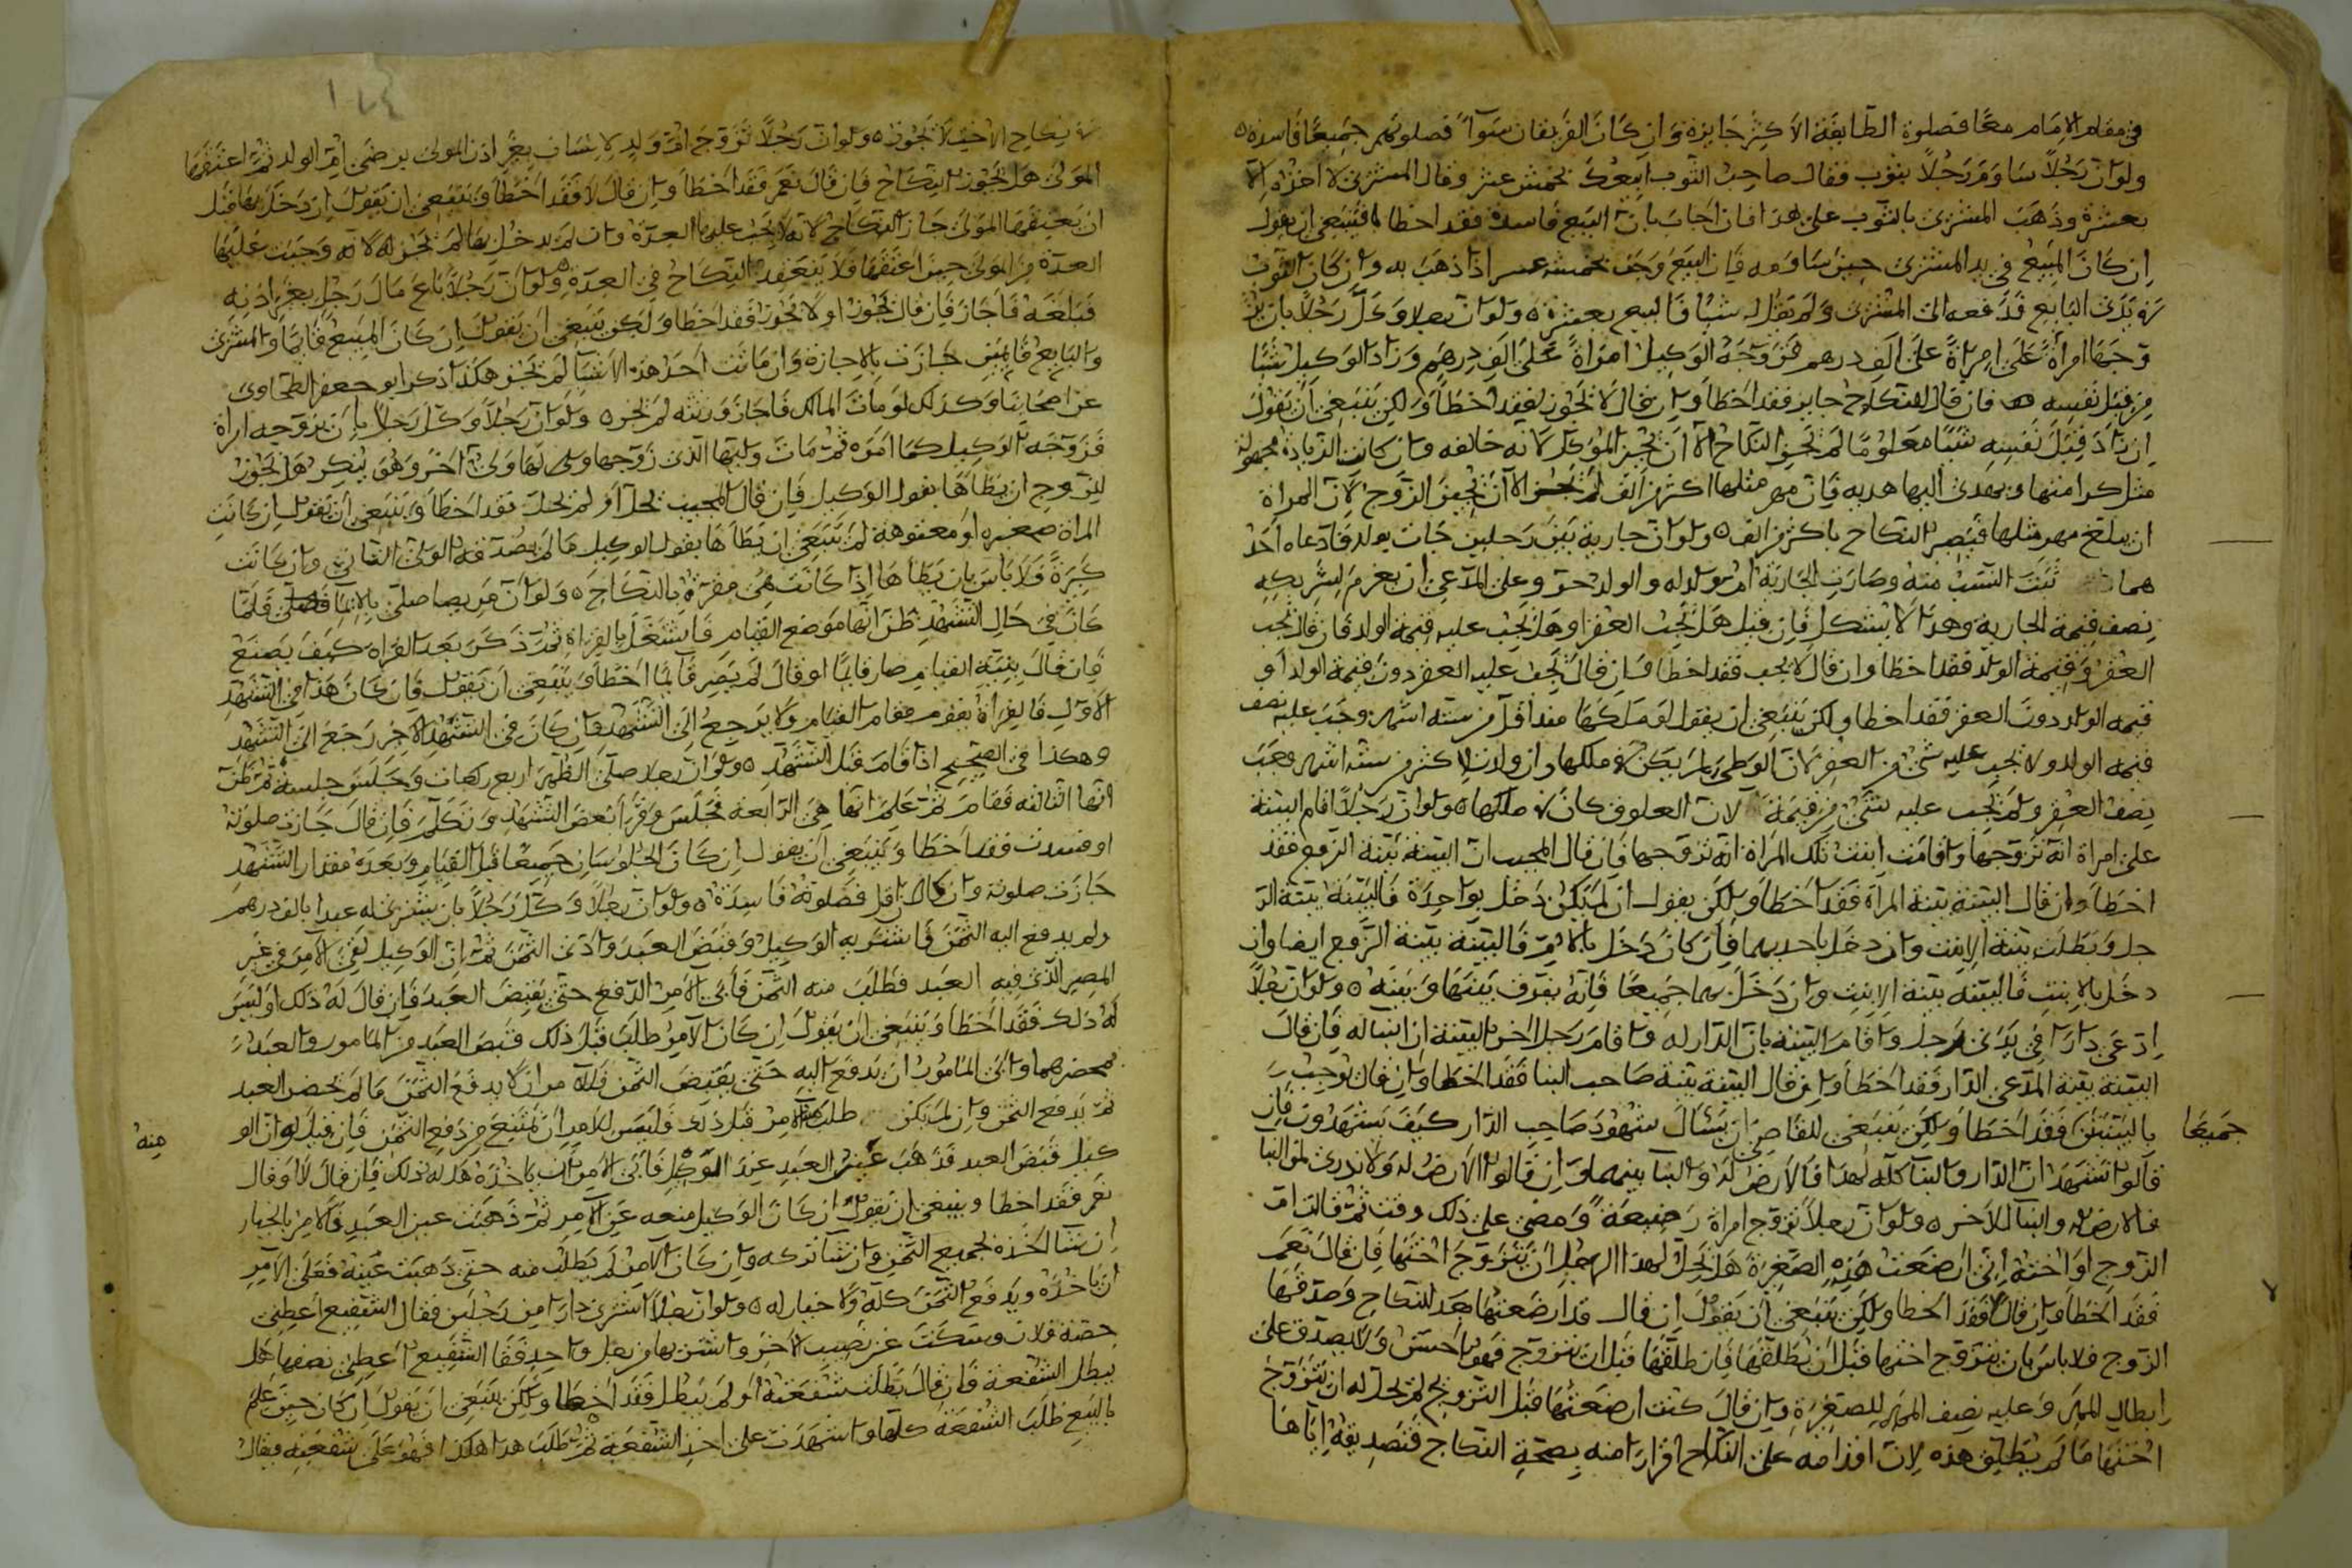 في مقام الامام معًا فصلوة الطايفة الاكثر جايزة وان كان الفريقان سوآءً فصلوتهم جميعًا فاسدة ه
ولو ان رجلاً ساوم رجلاً بثوب فقال صاحب الثوب ابيعك بخمسة عشر وقال المشتري لا اخذه الا
بعشرة وذهب المشتري بالثوب على هذا فان اجاب بان البيع فاسد فقد اخطا فينبغي ان يقول
ان كان المبيع في يد المشتري حين ساومه فان البيع وجب بخمسة عشر اذا ذهب به وان كان الثوب
في يدي البايع فدفعه الى المشتري ولم يقل له شيئًا فالبيع بعشرة ه ولو ان رجلا وكل رجلاً بان
زوجها امراة على الف درهم فزوجه الوكيل امراةً على الف درهم وزاد الوكيل شيئًا
من قبل نفسه فان قال النكاح جايز فقد اخطأ وان قال لا يجوز فقد اخطأ ولكن ينبغي ان يقول
ان زاد قبل نفسه شيئًا معلومًا لم يجز النكاح الا ان يجيز الموكل لانه خالفه وان كانت الزيادة مجهولة
مثل كرامتها ويهدي اليها هدية فان مهر مثلها اكثر من الف لم يجز الا ان يجيز الزوج لان المراة
ان يبلغ مهر مثلها فيصير النكاح باكثر من الف ه ولو ان جارية بين رجلين جات بولد فادعاه احد
هما ثبت النسب منه وصارت الجارية ام ولد له والولد حر وعلى المدعي ان يغرم لشريكه
نصف قيمة الجارية وهذا لا يشكل فان قيل هل يجب العقر او هل يجب عليه قيمة الولد فان قال يجب
العقر وقيمة الولد فقد اخطأ وان قال لا يجب فقد اخطأ فان قال يجب عليه العقر دون قيمة الولد او
قيمة الولد دون العقر فقد اخطا ولكن ينبغي ان يقول لو ملكها منذ اقل من ستة اشهر وجب عليه نصف
قيمة الولد ولا يجب عليه شيء من العقر لان الوطي لم يكن في ملكها وان ولدت لاكثر من ستة اشهر وجب
نصف العقر ولم يجب عليه شيء من قيمة لان العلوق كان في ملكها ه ولو ان رجلاً اقام البينة
على امراة انه تزوجها واقامت ابنت تلك المراة انه تزوجها فان قال المجيب ان البينة بينة الزوج فقد
اخطأ وان قال البينة بينة المراة فقد اخطأ ولكن يقول ان لم يكن دخل بواحدة فالبينة بينة الر
جل وبطلت بينة الابنت وان دخل باحديهما فان كان دخل بالام فالبينة بينة الزوج ايضا وان
دخل بالابنت فالبينة بينة الابنت وان دخل بهما جميعًا فانه يفرق بينها وبينه ه ولو ان رجلاً
ادعى دارا في يدي رجل واقام البينة بان الدار له واقام رجلا اخر البينة ان البنا له فان قال
البينة بينة المدعي الدار فقد اخطأ وان قال البينة بينة صاحب البنا فقد اخطا وان قال توجب
بالبينتين فقد اخطأ ولكن ينبغي للقاضي ان يسأل شهود صاحب الدار كيف تشهدون فان
جميعًا
قالوا نشهد ان الدار والبنا كله لهذا فالارض له والبنا بينهما وان قالوا الارض له ولا ندري لمن البنا
فالارض له والبنا للاخر ه ولو ان رجلاً تزوج امراة رضيعة ومضى على ذلك وقت ثم قالت ام
الزوج او اخته اني ارضعت هذه الصغيرة هل يحل لهذا الرجل ان يتزوج اختها فان قال نعم
فقد اخطأ وان قال لا فقد اخطا ولكن ينبغي ان يقول ان قالت قد ارضعتها بعد النكاح وصدقها
الزوج فلا باس بان يتزوج اختها قبل ان يطلقها فان طلقها قبل ان يتزوج فهو احسن ولا يصدق على
ابطال المهر وعليه نصف المهر للصغيرة وان قال كنت ارضعتها قبل التزويج لم يحل له ان يتزوج
اختها ما لم يطلق هذه لان اقدامه على النكاح اقرارا منه بصحة النكاح فتصديقه اياها
١٢٤
في نكاح الاخت لا يجوز ه ولو ان رجلاً تزوج ام ولد لانسان بغير اذن المولى برضى ام الولد ثم اعتقها
المولى هل يجوز النكاح فان قال نعم فقد اخطأ وان قال لا فقد اخطأ وينبغي ان يقول ان دخل بها قبل
ان يعتقها المولى جاز النكاح لانه لا يجب عليها العدة وان لم يدخل بها لم يجز له لانه وجبت عليها
العدة من المولى حين اعتقها فلا ينعقد النكاح في العدة ه ولو ان رجلاً باع مال رجل بغير اذنه
فبلغه فاجاز فان قال يجوز او لا يجوز فقد اخطا ولكن ينبغي ان يقول ان كان المبيع قايمًا والمشتري
والبايع قايمين جازت بالاجازة وان ماتت احد هذه الاشيا لم يجز هكذا ذكر ابو جعفر الطحاوي
عن اصحابنا وكذلك لو مات المالك فاجاز ورثته لم يجز ه ولو ان رجلاً وكل رجلاً بان يزوجه امراة
فزوجه الوكيل كما امره ثم مات وليها الذي زوجها ولها ولي اخر وهو ينكر هل يجوز
للزوج ان يطاها بقول الوكيل فان قال المجيب يحل او لم يحل فقد اخطأ وينبغي ان يقول ان كانت
المراة صغيره او معتوهة لم ينبغي ان يطأها بقول الوكيل ما لم يصدقه الولي الثاني وان كانت
كبيرة فلا باس بان يطأها اذا كانت هي مقرة بالنكاح ه ولو ان مريضا صلى بالايما فصلى فلما
كان في حال التشهد ظن انها موضع القيام فاشتغل بالقراة ثم ذكر بعد القراة كيف يصنع
فان قال بنية القيام صار قايمًا او قال لم يصر قايما اخطأ وينبغي ان يقول فان كان هذا في التشهد
الاول فالقراة يقوم مقام القيام ولا يرجع الى التشهد وان كان في التشهد الاخر رجع الى التشهد
وهكذا في الصحيح اذا قام قبل التشهد ه ولو ان رجلا صلى الظهر اربع ركعات وجلس جلسة ثم ظن
انها الثالثة فقام ثم علم انها هي الرابعة فجلس وقرأ بعض التشهد وتكلم فان قال جازت صلوته
او فسدت فقد اخطأ وينبغي ان يقول ان كان الجلوسان جميعًا قبل القيام وبعده مقدار التشهد
جازت صلوته وان كان اقل فصلوته فاسدة ه ولو ان رجلاً وكل رجلاً بان يشتري له عبدا بالف درهم
ولم يدفع اليه الثمن فاشتريه الوكيل وقبض العبد وادى الثمن ثم ان الوكيل لقي الآمر في غير
المصر الذي فيه العبد فطلب منه الثمن فأبى الآمر الدفع حتى يقبض العبد فان قال له ذلك او ليس
له ذلك فقد اخطأ وينبغي ان يقول ان كان الآمر طلب قبل ذلك قبض العبد من المامور والعبد
بمحضرهما وابى المامور ان يدفع اليه حتى يقبض الثمن فللآمر ان لا يدفع الثمن ما لم يحضر العبد
ثم يدفع الثمن وان لم يكن طلب الآمر قبل ذلك فليس للآمر ان يمتنع من دفع الثمن فان قيل لو ان الو
منه
كيل قبض العبد قد ذهب عين العبد عند الوكيل فأبى الآمر ان ياخذه هل له ذلك فان قال لا او قال
نعم فقد اخطا وينبغي ان يقول ان كان الوكيل منعه عن الآمر ثم ذهبت عين العبد فالآمر بالخيار
ان شا اخذه بجميع الثمن وان شا تركه وان كان الآمر لم يطلب منه حتى ذهبت عينه فعلى الآمر
ان ياخذه ويدفع الثمن كله ولا خيار له ه ولو ان رجلاً اشترى دارا من رجلين فقال الشفيع اعطني
حصة فلان وسكت عن نصيب الآخر واشتريها من رجل واحد فقال الشفيع اعطني نصفها هل
يبطل الشفعة فان قال بطلت شفعته او لم يبطل فقد اخطأ ولكن ينبغي ان يقول ان كان حين علم
بالبيع طلب الشفعة كلها واشهدت على اخذ الشفعة ثم طلب هذا هكذا فهو على شفعته ويقال